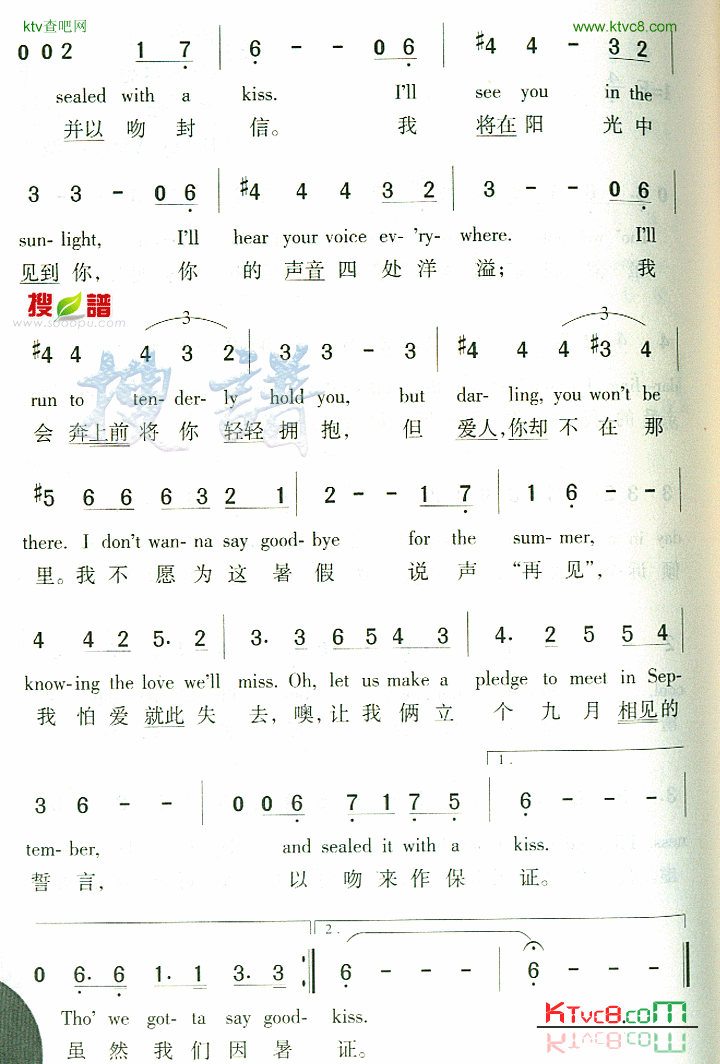 ktv查吧网 www.ktvc8.com
0 0 2 1 7 | 6 - - 0 6 | #4 4 - 3 2 |
sealed with a kiss. I'll see you in the
并以 吻 封 信。 我 将在 阳 光 中
3 3 - 0 6 | #4 4 4 3 2 | 3 - - 0 6 |
sun- light, I'll hear your voice ev- 'ry- where. I'll
见到 你, 你 的 声音 四 处 洋 溢; 我
搜谱
www.sooopu.com
搜谱
3 3
#4 4 4 3 2 | 3 3 - 3 | #4 4 4 #3 4 |
run to ten- der- ly hold you, but dar- ling, you won't be
会 奔上前 将 你 轻轻 拥 抱, 但 爱人, 你却 不 在 那
#5 6 6 6 3 2 1 | 2 - - 1 7 | 1 6 - - |
there. I don't wan- na say good- bye for the sum- mer,
里。我 不 愿 为 这 暑 假 说 声 “再 见”,
4 4 2 5. 2 | 3. 3 6 5 4 3 | 4. 2 5 5 4
know-ing the love we'll miss. Oh, let us make a pledge to meet in Sep-
我 怕 爱 就此 失 去, 噢, 让 我 俩 立 个 九 月 相见 的
1.
3 6 - - | 0 0 6 7 1 7 5 | 6 - - - |
tem- ber, and sealed it with a kiss.
誓 言, 以 吻 来 作 保 证。
2.
0 6. 6 1. 1 3. 3 :| 6 - - - | 6 - - - |
Tho' we got- ta say good- kiss.
虽 然 我 们 因 暑 证。
KTvc8.com